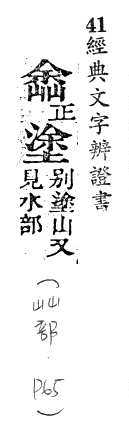 41經典文字辨證書
嵞正塗别塗山又
見水部
(屾部 P65)